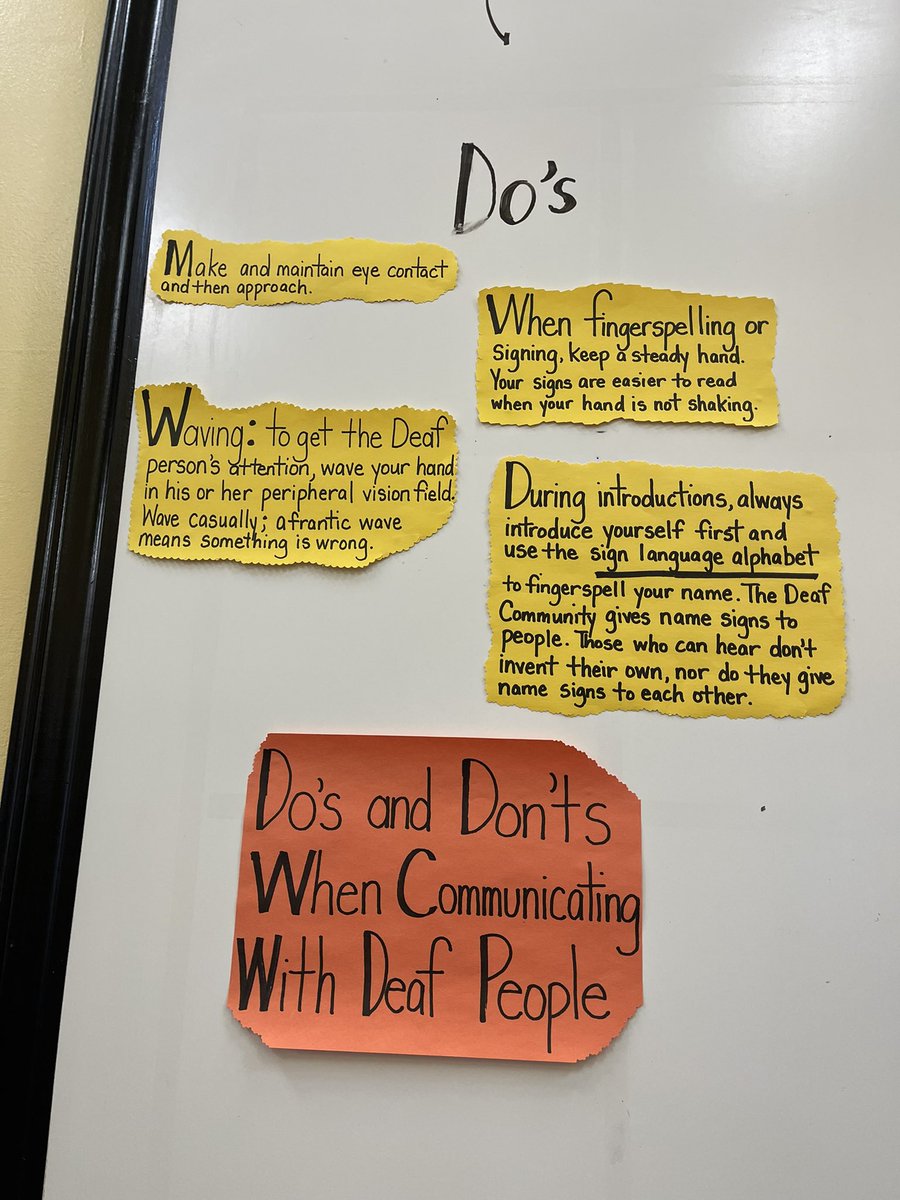 Do's
Make and maintain eye contact
and then approach.
When fingerspelling or
Signing, keep a steady hand.
Your signs are easier to read
when your hand is not shaking.
Waving: to get the Deaf
person's attention, wave your hand
in his or her peripheral vision field.
Wave casually; a frantic wave
means something is wrong.
During introductions, always
introduce yourself first and
use the sign language alphabet
to fingerspell your name. The Deaf
Community gives name signs to
people. Those who can hear don't
invent their own, nor do they give
name signs to each other.
Do's and Don'ts
When Communicating
With Deaf People